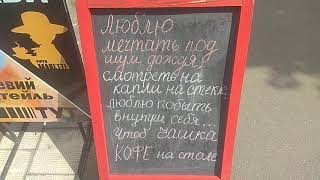 Люблю
мечтать под
шум дождя,
смотреть на
капли на стекле
люблю побыть
внутри себя...
Чтоб чашка
КОФЕ на столе
ТУТ